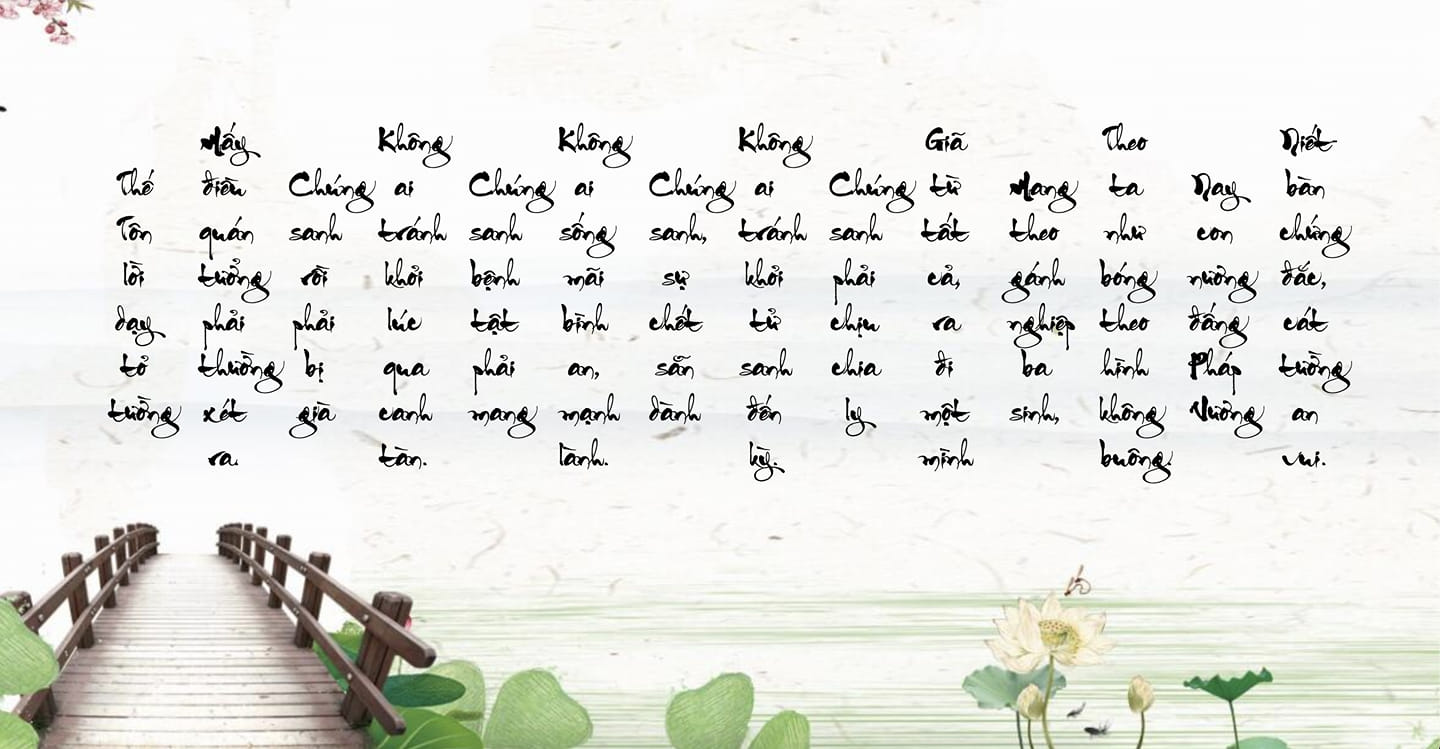 Thế Tôn lời dạy tỏ tường
Mấy điều quán tưởng phải thường xét ra.
Chúng sanh rồi phải bị già
Không ai tránh khỏi lúc qua canh tàn.
Chúng sanh bệnh tật phải mang
Không ai sống mãi bình an, mạnh lành.
Chúng sanh, sự chết sẵn dành
Không ai tránh khỏi tử sanh đến kỳ.
Chúng sanh phải chịu chia ly
Giã từ tất cả, ra đi một mình
Mang theo gánh nghiệp ba sinh,
Theo ta như bóng theo hình không buông.
Nay con nương đấng Pháp Vương
Niết bàn chứng đắc, cát tường an vui.